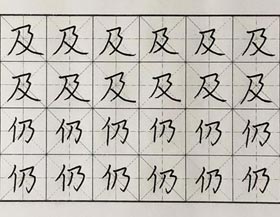 及及及及及及
及及及及及及
仍仍仍仍仍仍
仍仍仍仍仍仍